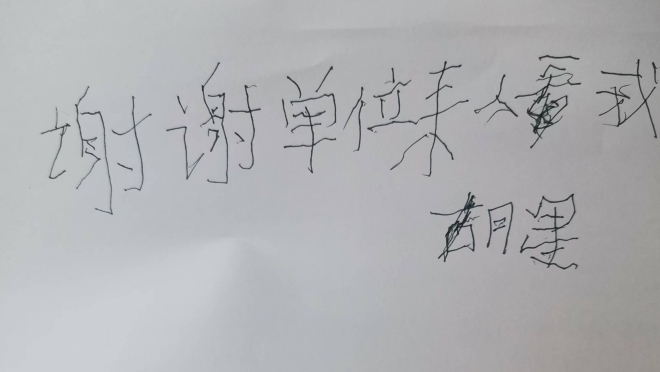 谢谢单位来人看我
胡墨